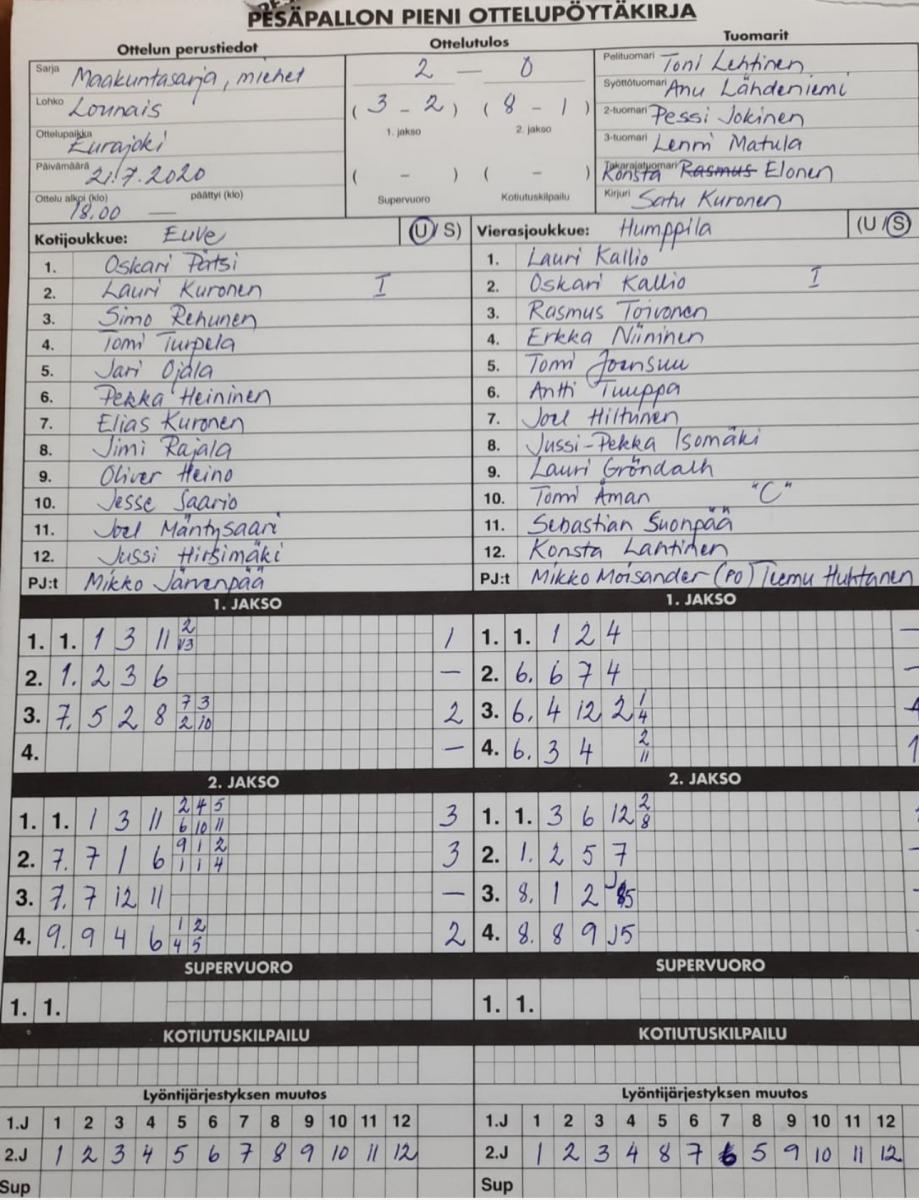 PESÄPALLON PIENI OTTELUPÖYTÄKIRJA
Ottelun perustiedot
Sarja Maakuntasarja, miehet
Lohko Lounais
Ottelupaikka Eurajoki
Päivämäärä 21.7.2020
Ottelu alkoi (klo) päättyi (klo)
18.00 —
Ottelutulos
2 — 0
(3 - 2) (8 - 1)
1. jakso 2. jakso
( - ) ( - )
Supervuoro Kotiutuskilpailu
Tuomarit
Pelituomari Toni Lehtinen
Syöttötuomari Anu Lähdeniemi
2-tuomari Pessi Jokinen
3-tuomari Lenni Matula
Takarajatuomari Konsta Rasmus Elonen
Kirjuri Satu Kuronen
Kotijoukkue: Euve (U/S)
1. Oskari Patsi
2. Lauri Kuronen I
3. Simo Rehunen
4. Tomi Turpela
5. Jari Ojala
6. Pekka Heininen
7. Elias Kuronen
8. Jimi Rajala
9. Oliver Heino
10. Jesse Saario
11. Joel Mäntysaari
12. Jussi Hirsimäki
PJ:t Mikko Järvenpää
Vierasjoukkue: Humppila (U/S)
1. Lauri Kallio
2. Oskari Kallio I
3. Rasmus Toivonen
4. Erkka Niininen
5. Tomi Joensuu
6. Antti Tuuppa
7. Joel Hiltunen
8. Jussi-Pekka Isomäki
9. Lauri Gröndalh
10. Tomi Åman "C"
11. Sebastian Suonpää
12. Konsta Lahtinen
PJ:t Mikko Moisander (PO) Teemu Huhtanen
1. JAKSO
1. 1. 1 3 11 2 13 1
2. 1. 2 3 6 —
3. 7. 5 2 8 7 3 2 10 2
4. —
1. JAKSO
1. 1. 1 2 4 —
2. 6. 6 7 4 —
3. 6. 4 12 2 1 4
4. 6. 3 4 2 11 1
2. JAKSO
1. 1. 1 3 11 2 4 5 6 10 11 3
2. 7. 7 1 6 9 1 2 1 1 4 3
3. 7. 7 12 11 —
4. 9. 9 4 6 1 2 4 5 2
2. JAKSO
1. 1. 3 6 12 2 8
2. 1. 2 5 7
3. 8. 1 2 J5
4. 8. 8 9 J5
SUPERVUORO
1. 1.
SUPERVUORO
1. 1.
KOTIUTUSKILPAILU
KOTIUTUSKILPAILU
Lyöntijärjestyksen muutos
1.J 1 2 3 4 5 6 7 8 9 10 11 12
2.J 1 2 3 4 5 6 7 8 9 10 11 12
Sup
Lyöntijärjestyksen muutos
1.J 1 2 3 4 5 6 7 8 9 10 11 12
2.J 1 2 3 4 8 7 6 5 9 10 11 12
Sup